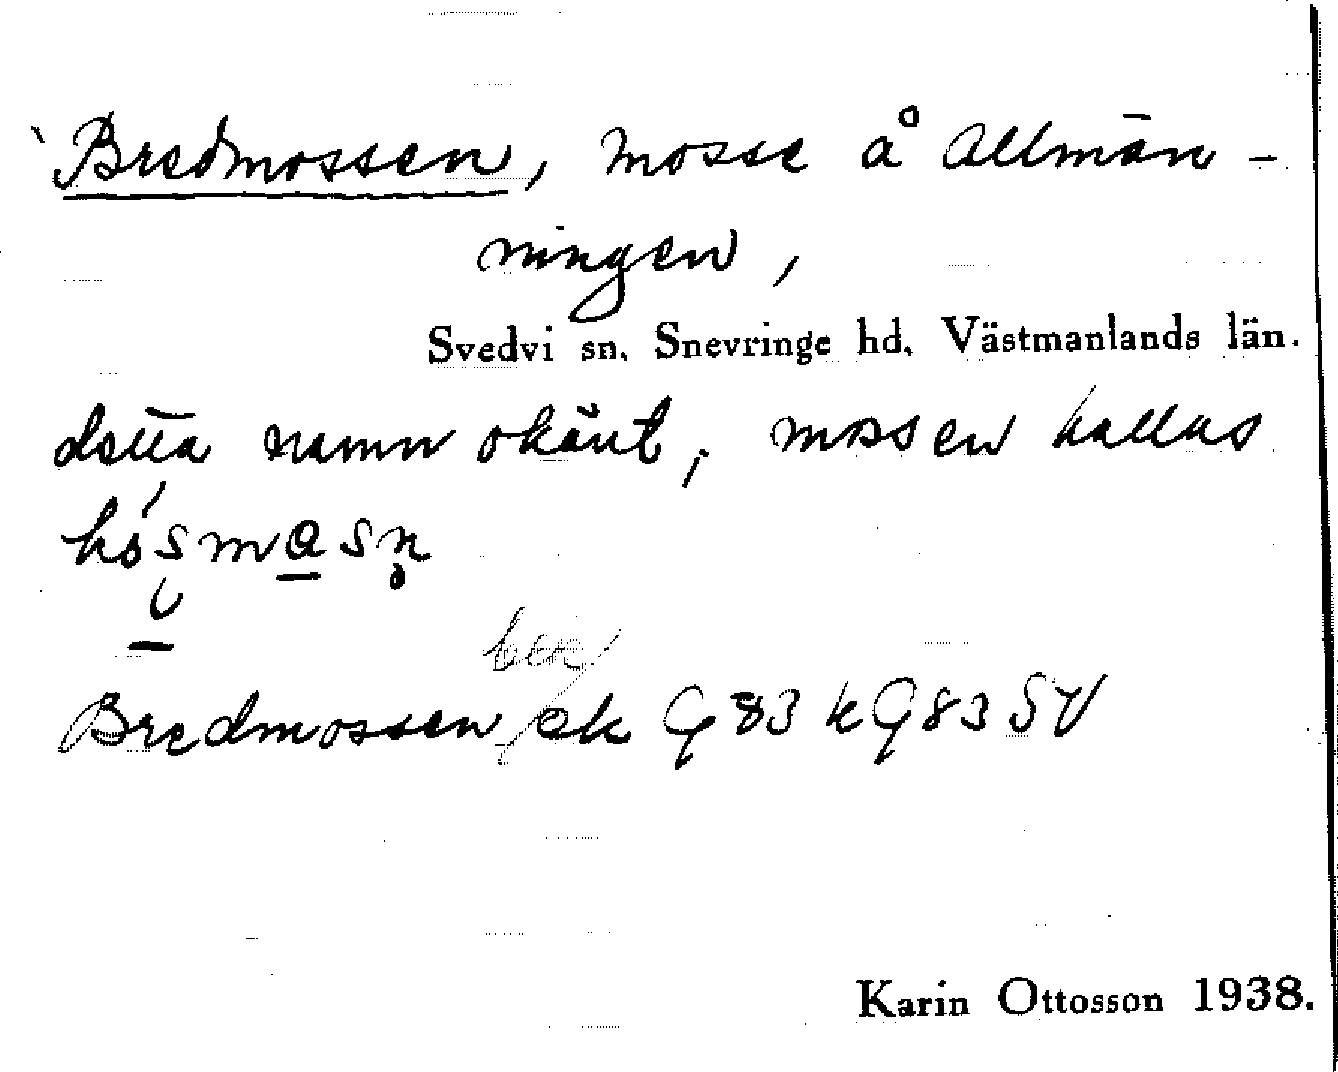 Bredmossen, mosse å Allmän-
ningen,
Svedvi sn. Snevringe hd. Västmanlands län.
detta namn okänt, mossen kallas
Bredmossen ek G 83 k G 83 SV
Karin Ottosson 1938.